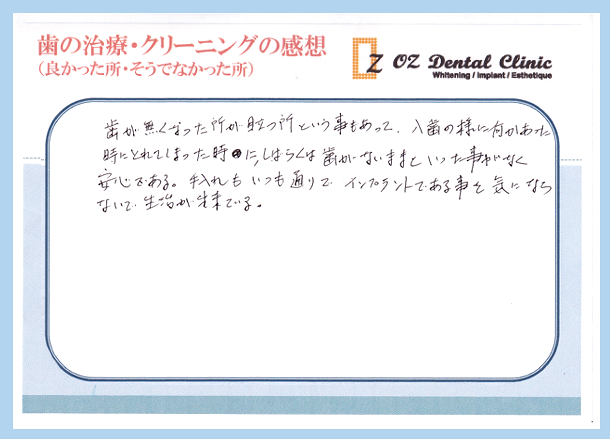 歯の治療・クリーニングの感想
(良かった所・そうでなかった所)
OZ Dental Clinic
Whitening / Implant / Esthetique
歯が無くなった所が目立つ所という事もあって、入歯の様に何かあった
時にとれてしまった時に、しばらくは歯がないままといった事がなく
安心である。手入れもいつも通りで、インプラントである事を気になら
ないで生活が出来ている。